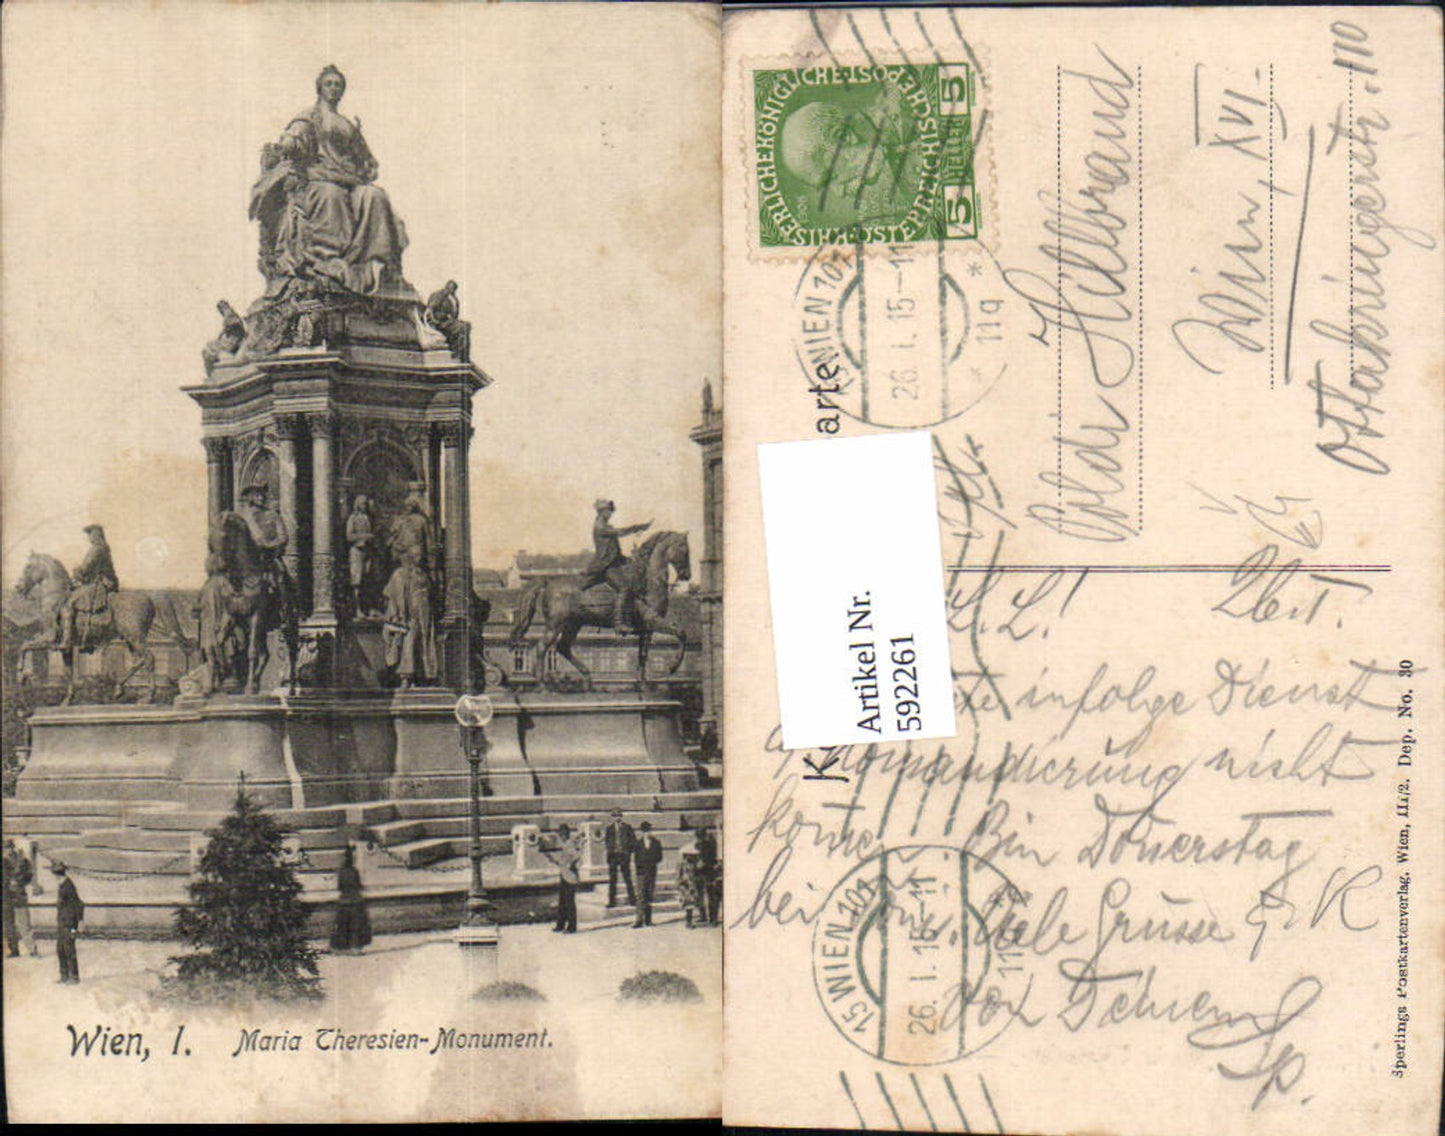 Wien, I. Maria Theresien-Monument.
KAISERLICHE KÖNIGLICHE POST
ÖSTERREICHISCHE
5 HELLER 5
1908
15 WIEN 101
26. I. 15-11
11q
*
K
arte
Artikel Nr.
592261
Poldi Hillbrand
Wien, XVI.
Ottakringerstr. 110
L. L!
26./I.
infolge Dienst
nicht
komen. Bin Donerstag
bei Viele Grüsse & K
von Deinem
Sp.
15 WIEN 101
26. I. 15-11
11q
Sperlings Postkartenverlag, Wien, III/2. Dep. No. 30